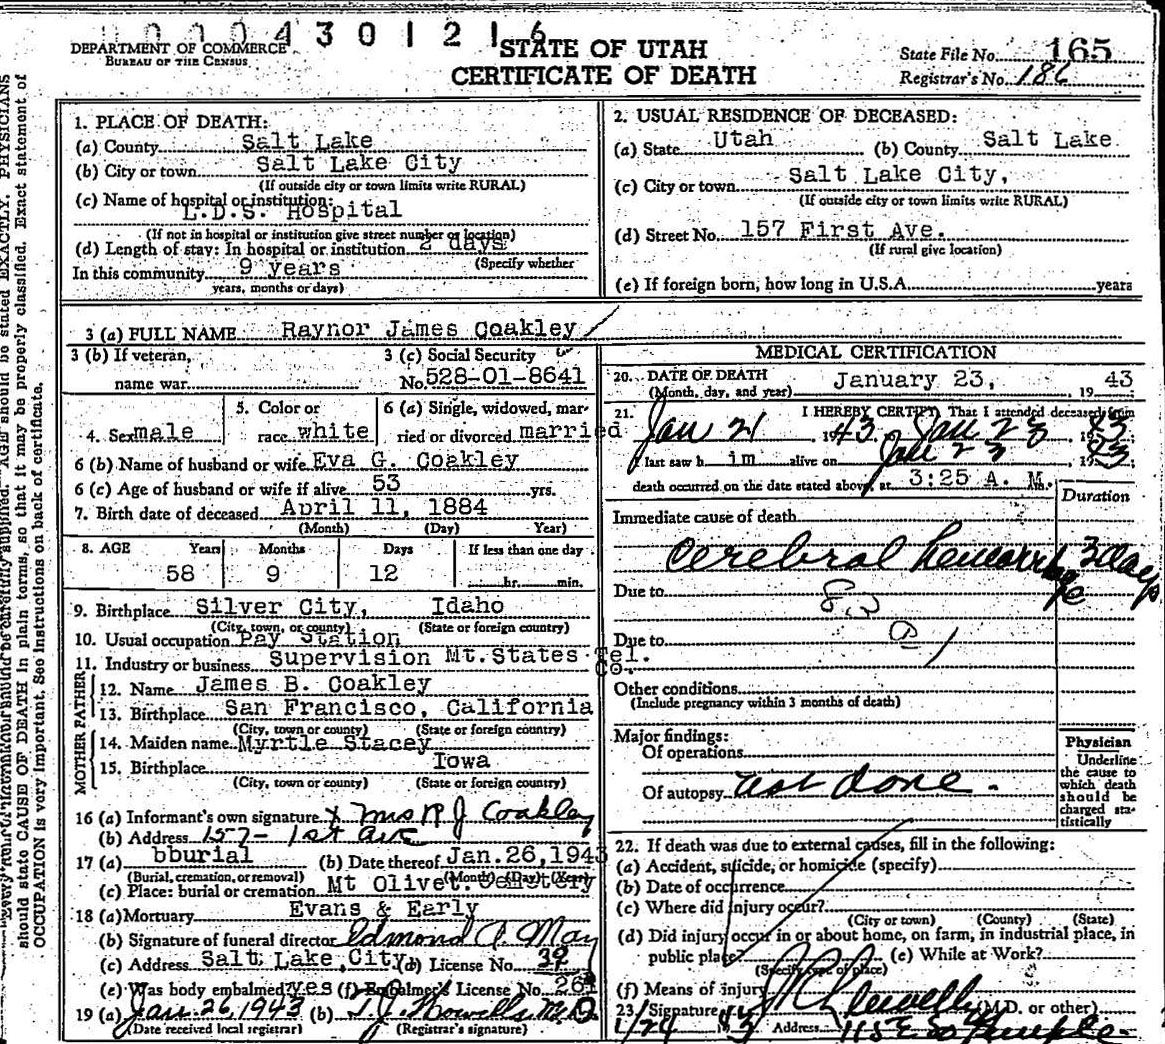 0 0 0 4 3 0 1 2 1 6
DEPARTMENT OF COMMERCE
BUREAU OF THE CENSUS
STATE OF UTAH
CERTIFICATE OF DEATH
State File No. 165
Registrar's No. 186
1. PLACE OF DEATH:
(a) County Salt Lake
(b) City or town Salt Lake City
(If outside city or town limits write RURAL)
(c) Name of hospital or institution:
L.D.S. Hospital
(If not in hospital or institution give street number or location)
(d) Length of stay: In hospital or institution 2 days
(Specify whether
In this community 9 years
years, months or days)
2. USUAL RESIDENCE OF DECEASED:
(a) State Utah (b) County Salt Lake
(c) City or town Salt Lake City,
(If outside city or town limits write RURAL)
(d) Street No. 157 First Ave.
(If rural give location)
(e) If foreign born, how long in U.S.A. years
3 (a) FULL NAME Raynor James Coakley
3 (b) If veteran,
name war
3 (c) Social Security
No. 528-01-8641
4. Sex male
5. Color or
race white
6 (a) Single, widowed, mar-
ried or divorced married
6 (b) Name of husband or wife Eva G. Coakley
6 (c) Age of husband or wife if alive 53 yrs.
7. Birth date of deceased April 11, 1884
(Month) (Day) Year)
8. AGE Years Months Days If less than one day
58 9 12 hr. min.
9. Birthplace Silver City, Idaho
(City, town, or county) (State or foreign country)
10. Usual occupation Pay Station
11. Industry or business Supervision Mt.States Tel.
Co.
FATHER
12. Name James B. Coakley
13. Birthplace San Francisco, California
(City, town or county) (State or foreign country)
MOTHER
14. Maiden name Myrtle Stacey
15. Birthplace Iowa
(City, town or county) (State or foreign country)
16 (a) Informant's own signature x Mrs R J Coakley
(b) Address 157 - 1st ave
17 (a) bburial (b) Date thereof Jan.26,1943
(Burial, cremation, or removal) (Month) (Day) (Year)
(c) Place: burial or cremation Mt Olivet. Cemetery
18 (a) Mortuary Evans & Early
(b) Signature of funeral director Edmond P. May
(c) Address Salt Lake City (d) License No. 39
(e) Was body embalmed? yes (f) Embalmer's License No. 261
19 (a) Jan. 26, 1943 (b) T. J. Howells M.D.
(Date received local registrar) (Registrar's signature)
MEDICAL CERTIFICATION
20. DATE OF DEATH January 23, 19 43
(Month, day, and year)
21. I HEREBY CERTIFY, That I attended deceased from
Jan 21, 1943. Jan 23, 1943
I last saw him alive on Jan 23, 1943
death occurred on the date stated above, at 3:25 A. M.
Duration
Immediate cause of death
Cerebral hemorrhage 3 days
Due to
Due to
Other conditions
(Include pregnancy within 3 months of death)
Major findings:
Of operations
Of autopsy not done.
Physician
Underline
the cause to
which death
should be
charged sta-
tistically
22. If death was due to external causes, fill in the following:
(a) Accident, suicide, or homicide (specify)
(b) Date of occurrence
(c) Where did injury occur?
(City or town) (County) (State)
(d) Did injury occur in or about home, on farm, in industrial place, in
public place? (e) While at Work?
(Specify type of place)
(f) Means of injury
23. Signature (M.D. or other)
1/24 43 Address 115 E. So Temple
should state CAUSE OF DEATH in plain terms, so that it may be properly classified. Exact statement of
OCCUPATION is very important. See instructions on back of certificate.
AGE should be stated EXACTLY. PHYSICIANS